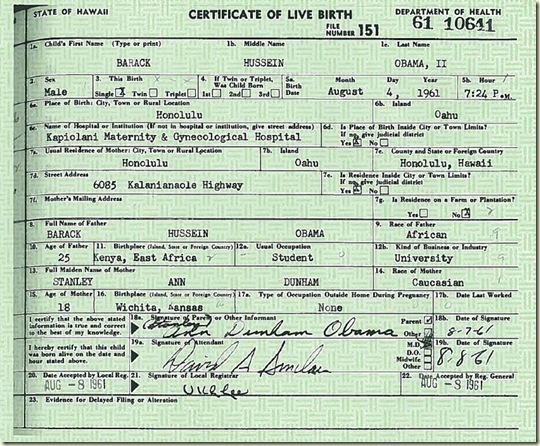 STATE OF HAWAII CERTIFICATE OF LIVE BIRTH DEPARTMENT OF HEALTH
FILE NUMBER 151 61 10641
1a. Child's First Name (Type or print) 1b. Middle Name 1c. Last Name
BARACK HUSSEIN OBAMA, II
2. Sex 3. This Birth 4. If Twin or Triplet, Was Child Born 5a. Birth Date Month Day Year 5b. Hour
Male Single X Twin Triplet 1st 2nd 3rd August 4, 1961 7:24 P.M.
6a. Place of Birth: City, Town or Rural Location 6b. Island
Honolulu Oahu
6c. Name of Hospital or Institution (If not in hospital or institution, give street address) 6d. Is Place of Birth Inside City or Town Limits? If no, give judicial district
Kapiolani Maternity & Gynecological Hospital Yes X No
7a. Usual Residence of Mother: City, Town or Rural Location 7b. Island 7c. County and State or Foreign Country
Honolulu Oahu Honolulu, Hawaii
7d. Street Address 7e. Is Residence Inside City or Town Limits? If no, give judicial district
6085 Kalanianaole Highway Yes X No
7f. Mother's Mailing Address 7g. Is Residence on a Farm or Plantation?
Yes No X
8. Full Name of Father 9. Race of Father
BARACK HUSSEIN OBAMA African
10. Age of Father 11. Birthplace (Island, State or Foreign Country) 12a. Usual Occupation 12b. Kind of Business or Industry
25 Kenya, East Africa Student University
13. Full Maiden Name of Mother 14. Race of Mother
STANLEY ANN DUNHAM Caucasian
15. Age of Mother 16. Birthplace (Island, State or Foreign Country) 17a. Type of Occupation Outside Home During Pregnancy 17b. Date Last Worked
18 Wichita, Kansas None
I certify that the above stated information is true and correct to the best of my knowledge. 18a. Signature of Parent or Other Informant Parent Other 18b. Date of Signature
(Stanley) Ann Dunham Obama 8-7-61
I hereby certify that this child was born alive on the date and hour stated above. 19a. Signature of Attendant M.D. D.O. Midwife Other 19b. Date of Signature
David A Sinclair 8-8-61
20. Date Accepted by Local Reg. 21. Signature of Local Registrar 22. Date Accepted by Reg. General
AUG -8 1961 UKLee AUG -8 1961
23. Evidence for Delayed Filing or Alteration